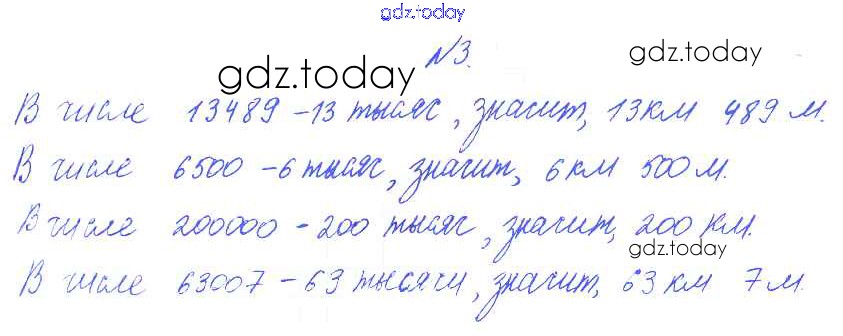 gdz.today
№3.
gdz.today
gdz.today
В числе 13489 - 13 тысяч, значит, 13 км 489 м.
В числе 6500 - 6 тысяч, значит, 6 км 500 м.
В числе 200000 - 200 тысяч, значит, 200 км.
gdz.today
В числе 63007 - 63 тысячи, значит, 63 км 7 м.